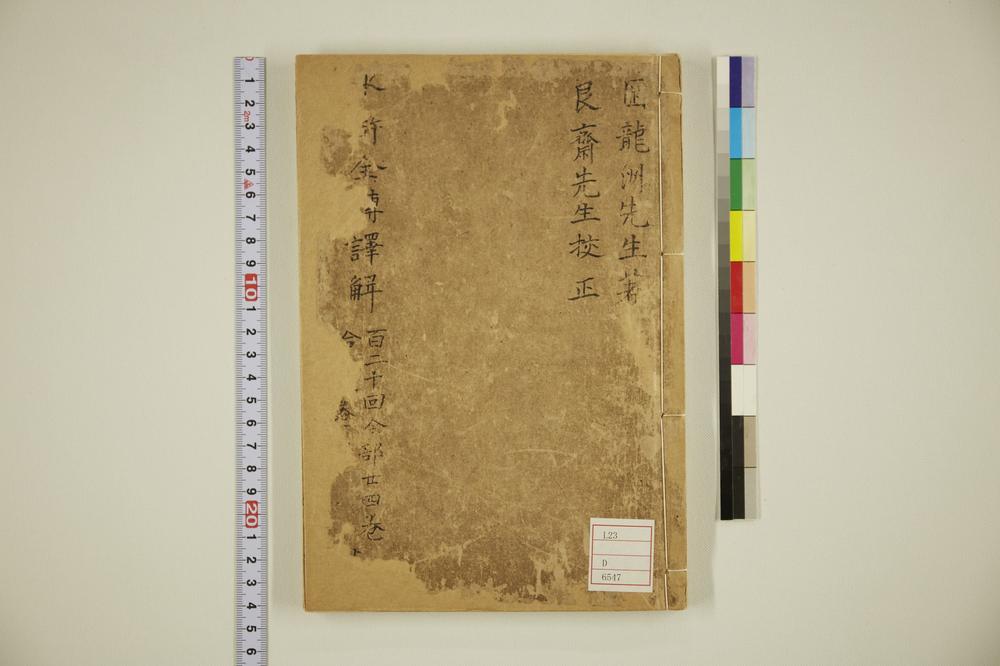 岡龍洲先生著
艮齋先生校正
水滸全傳譯解 百二十回全部廿四卷
今
L23
D
6547
0 1 2 3 4 5 6 7 8 9 10 1 2 3 4 5 6 7 8 9 20 1 2 3 4 5 6
2m